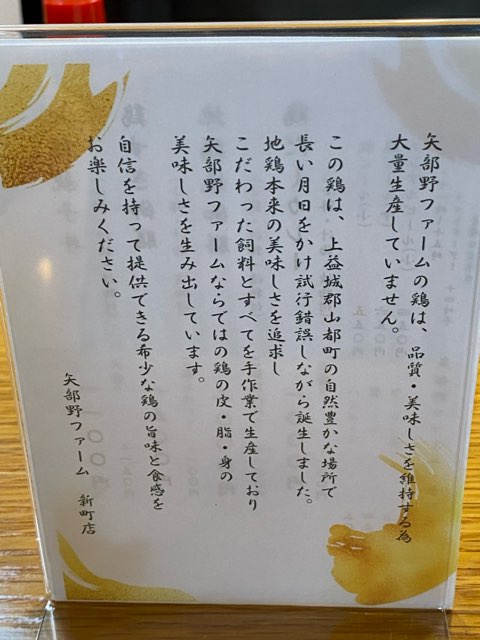 矢部野ファームの鶏は、品質・美味しさを維持する為
大量生産していません。
この鶏は、上益城郡山都町の自然豊かな場所で
長い月日をかけ試行錯誤しながら誕生しました。
地鶏本来の美味しさを追求し
こだわった飼料とすべてを手作業で生産しており
矢部野ファームならではの鶏の皮・脂・身の
美味しさを生み出しています。
自信を持って提供できる希少な鶏の旨味と食感を
お楽しみください。
矢部野ファーム 新町店